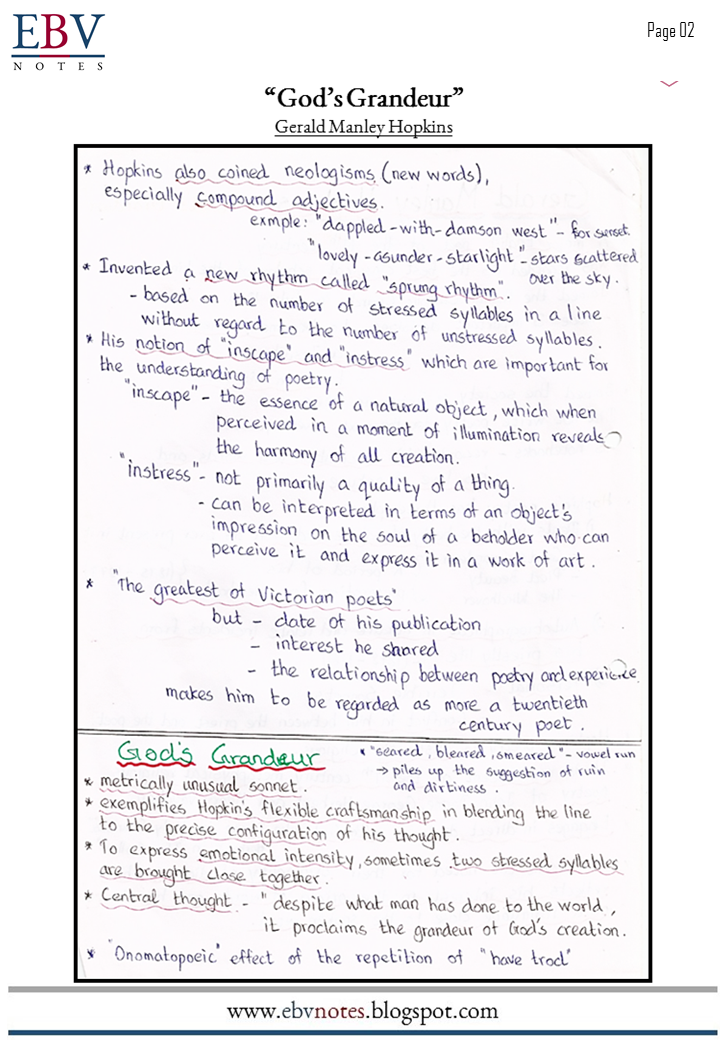 EBV
NOTES
Page 02
“God’s Grandeur”
Gerald Manley Hopkins
* Hopkins also coined neologisms (new words),
especially compound adjectives.
exmple: "dappled-with-damson west" - for sunset.
"lovely-asunder-starlight" - stars scattered
over the sky.
* Invented a new rhythm called "sprung rhythm".
- based on the number of stressed syllables in a line
without regard to the number of unstressed syllables.
* His notion of "inscape" and "instress" which are important for
the understanding of poetry.
"inscape" - the essence of a natural object, which when
perceived in a moment of illumination reveals
the harmony of all creation.
"instress" - not primarily a quality of a thing.
- can be interpreted in terms of an object's
impression on the soul of a beholder who can
perceive it and express it in a work of art.
* "The greatest of Victorian poets"
but - date of his publication
- interest he shared
- the relationship between poetry and experience
makes him to be regarded as more a twentieth
century poet.
God's Grandeur
* "seared, bleared, smeared" - vowel run
→ piles up the suggestion of ruin
and dirtiness.
* metrically unusual sonnet.
* exemplifies Hopkin's flexible craftsmanship in blending the line
to the precise configuration of his thought.
* To express emotional intensity, sometimes two stressed syllables
are brought close together.
* Central thought - "despite what man has done to the world,
it proclaims the grandeur of God's creation.
* "Onomatopoeic" effect of the repetition of "have trod"
www.ebvnotes.blogspot.com